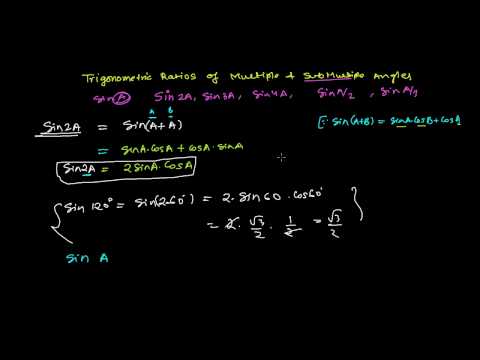 Trigonometric Ratios of Multiple & SubMultiple Angles
sin A Sin2A, Sin3A, Sin4A, Sin A/2 , sin A/3
A B
Sin2A = Sin(A+A) [∵ Sin(A+B) = sinA.cosB+cosA
= sinA.cosA + cosA.sinA
Sin2A = 2SinA.CosA
Sin 120° = Sin(2.60°) = 2.Sin60.cos60°
= 2. √3/2 . 1/2 = √3/2
Sin A